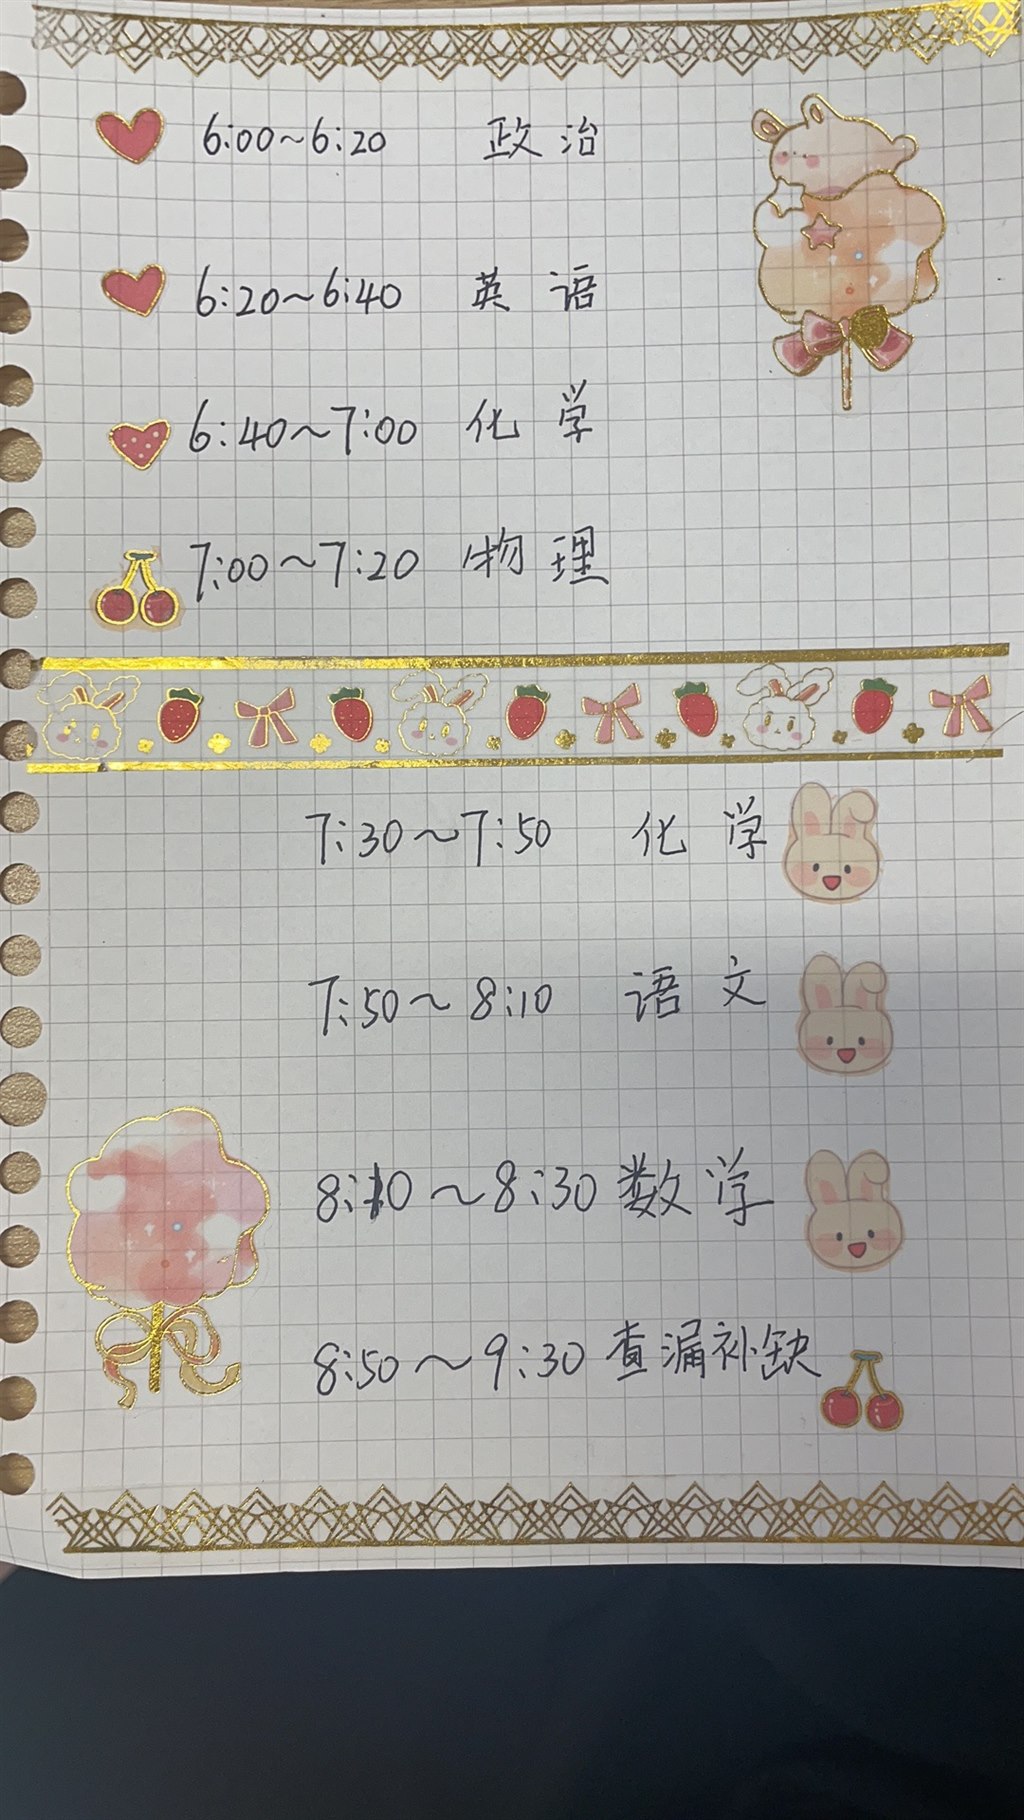 6:00~6:20 政治
6:20~6:40 英语
6:40~7:00 化学
7:00~7:20 物理
7:30~7:50 化学
7:50~8:10 语文
8:10~8:30 数学
8:50~9:30 查漏补缺